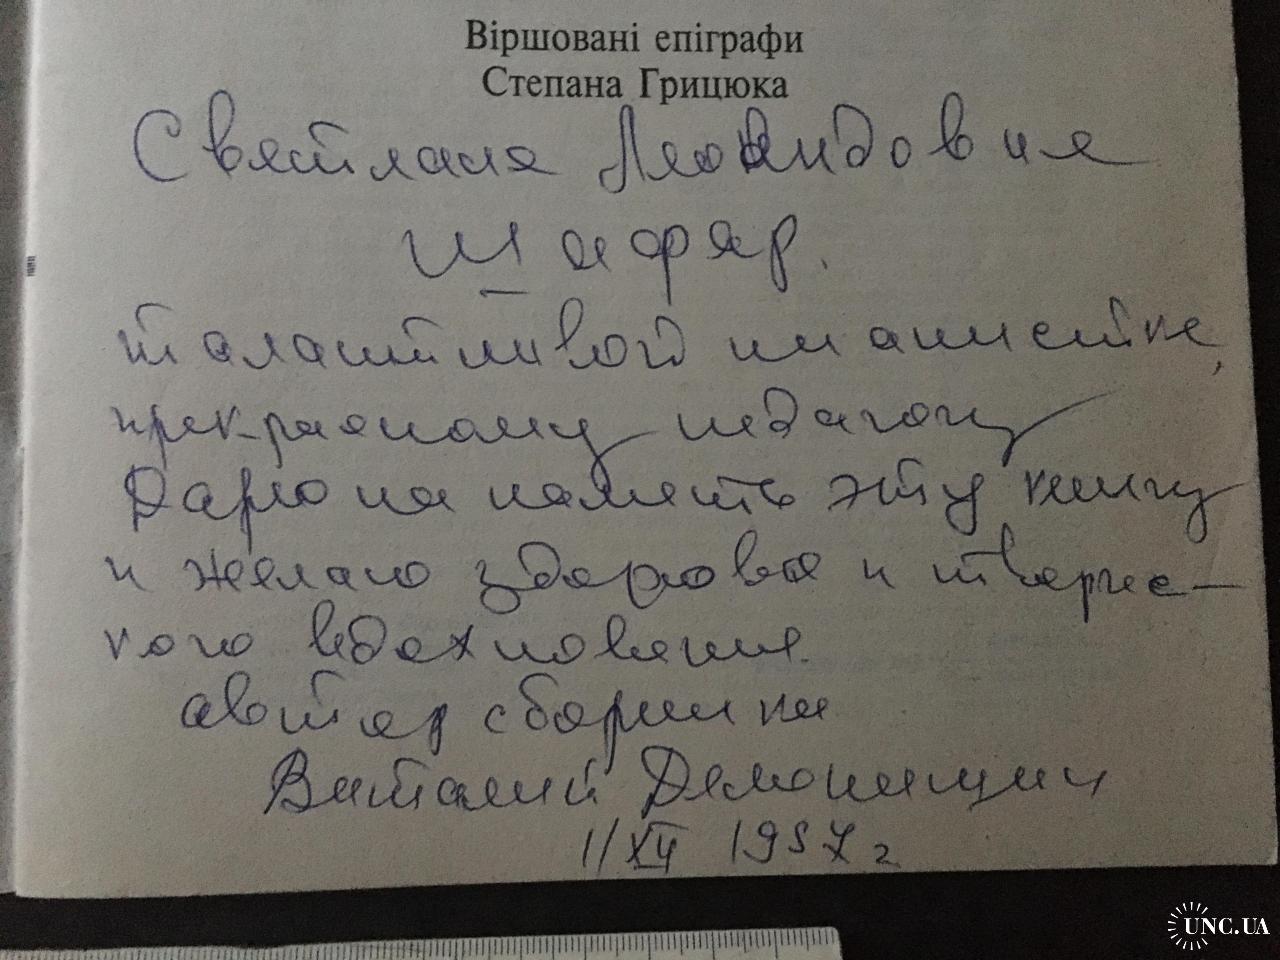 Віршовані епіграфи
Степана Грицюка
Светлане Леонидовне
Шафар.
талантливой пианистке,
прекрасному педагогу
Дарю на память эту книгу
и желаю здоровья и творчес-
кого вдохновения.
автор сборника
Виталий
11/XII 1997 г
UNC.UA